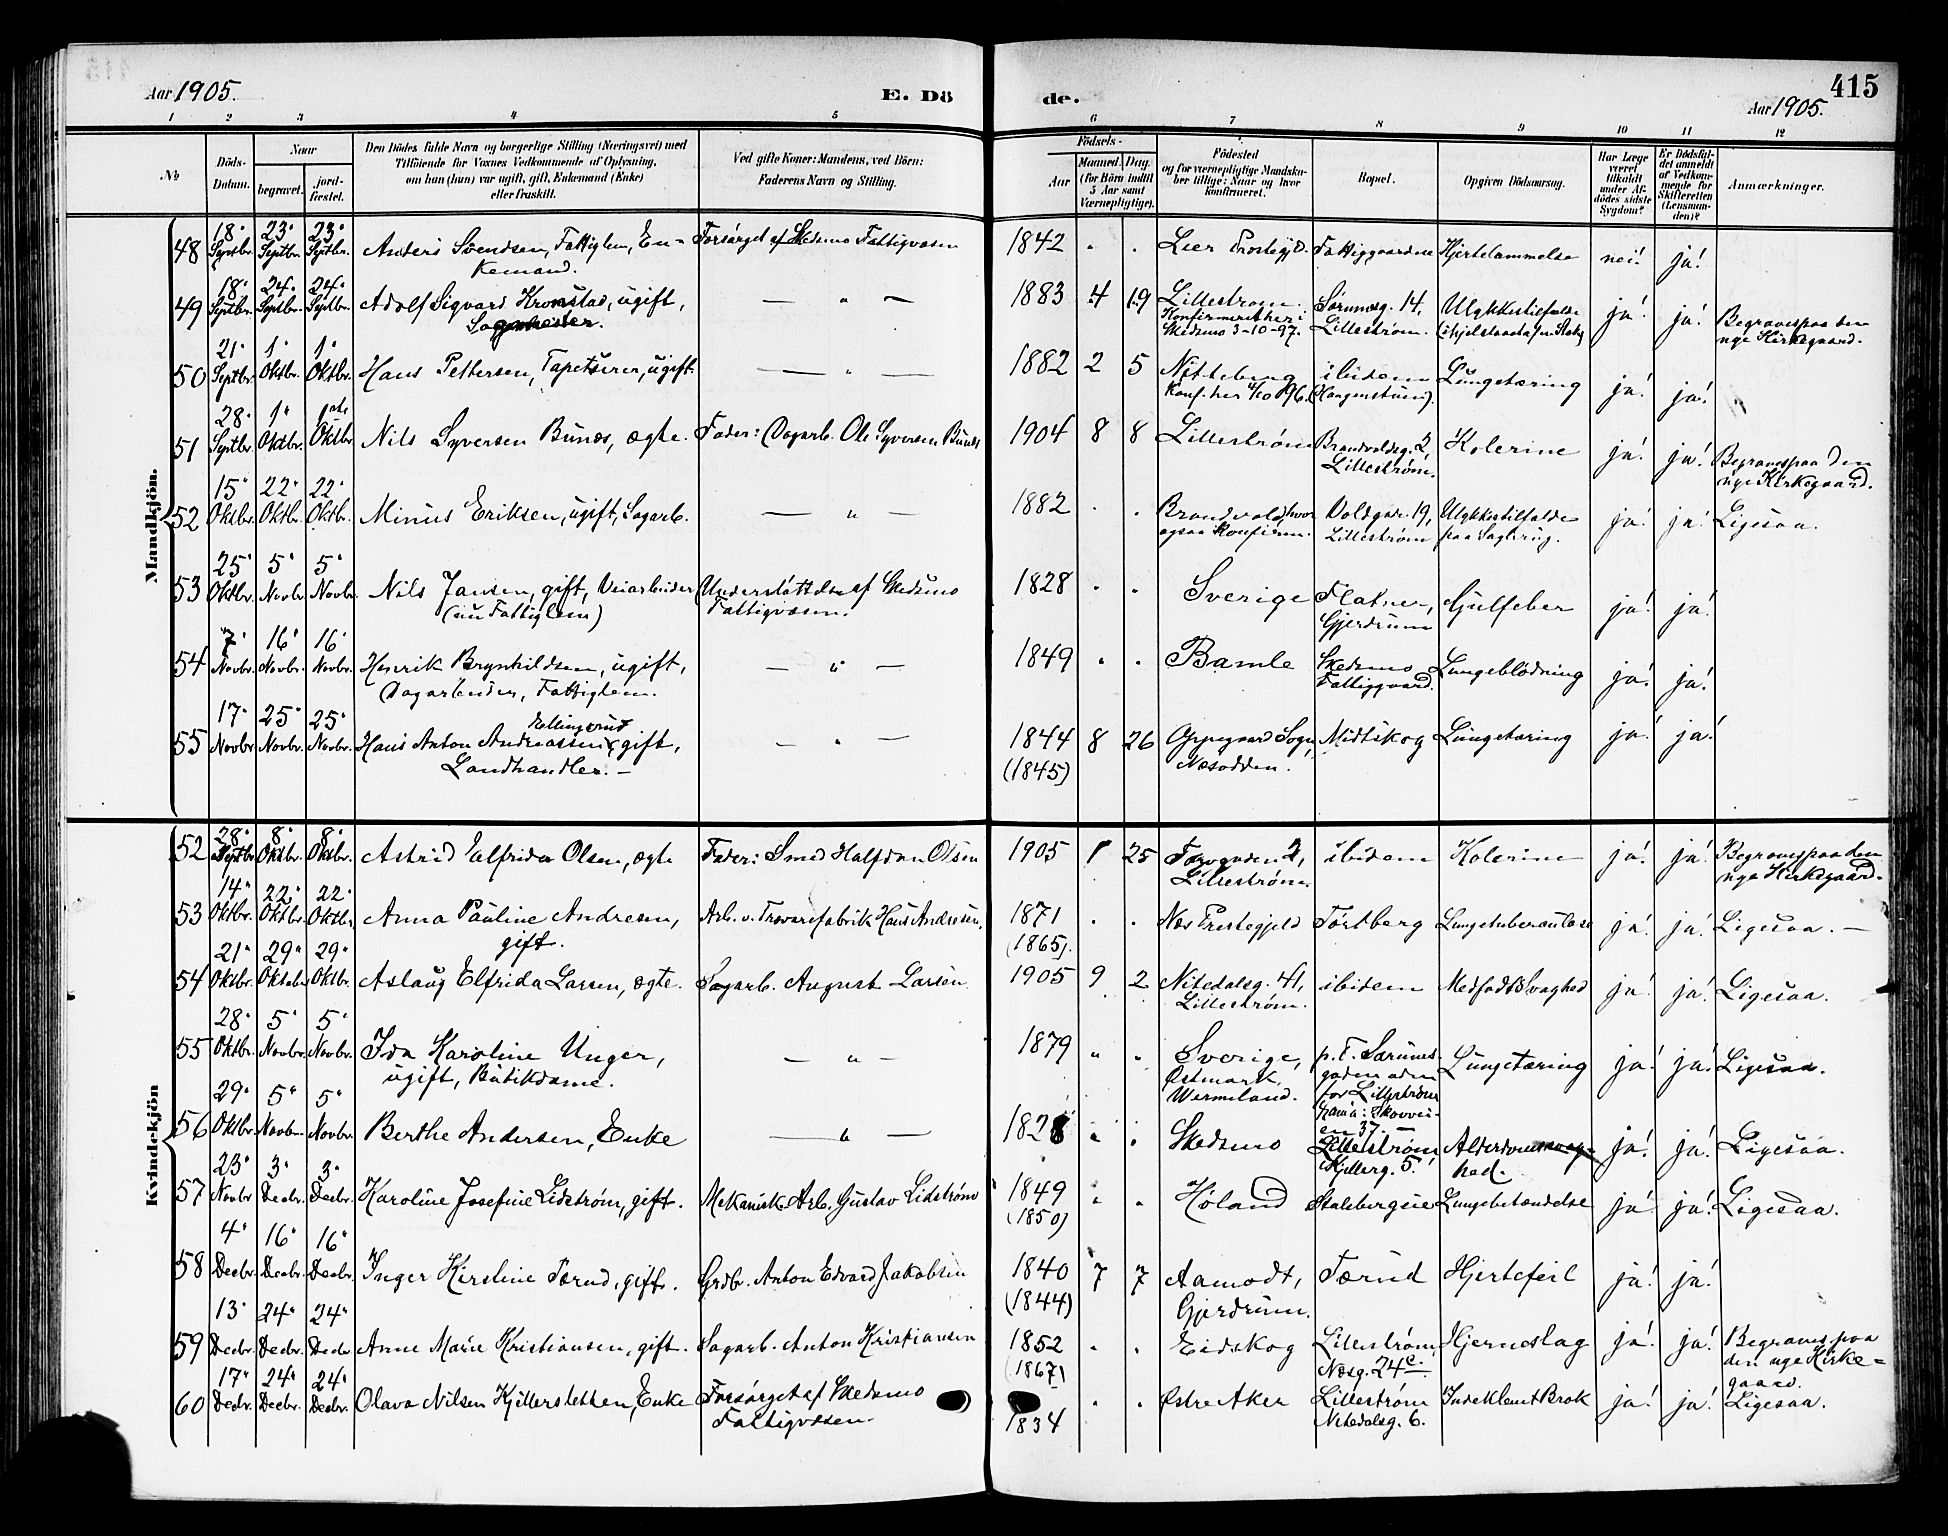 415
Aar 1905. E. Dö de. Aar 1905.
1 2 3 4 5 6 7 8 9 10 11 12
No
Döds-Datum.
Naar
begravet.
jord-fæstet.
Den Dödes fulde Navn og borgerlige Stilling (Næringsvei) med
Tilföiende for Voxnes Vedkommende af Oplysning,
om han (hun) var ugift, gift, Enkemand (Enke)
eller fraskilt.
Ved gifte Koner: Mandens, ved Börn:
Faderens Navn og Stilling.
Födsels-
Aar
Maaned. Dag.
(for Börn indtil
5 Aar samt
Værnepligtige).
Födested
og for værnepligtige Mandskaber tillige: Naar og hvor
konfirmeret.
Bopæl.
Opgiven Dödsaarsag.
Har Læge
været
tilkaldt
under Afdödes sidste
Sygdom?
Er Dödsfaldet anmeldt
af Vedkommende for
Skifteretten
(Lensmanden)?
Anmærkninger.
Mandkjön.
48 18' Septbr. 23' Septbr. 23' Septbr. Anders Svendsen, Fattiglem, En- Forsörget af Skedsmo Fattigvæsen 1842 " " Lier Prestegjd. Fattiggaarden Hjertelammelse nei! ja!
kemand.
49 18' Septbr. 24' Septbr. 24' Septbr. Adolf Sigvard Kronstad, ugift, — " — 1883 4 19 Lillestrøm. Sørumsg. 14, Ulykkestilfælde ja! ja! Begraves paa den
Sagmester. Konfirmeret her i Lillestrøm. nye Kirkegaard.
Skedsmo 3-10-97.
50 21' Septbr. 1' Oktbr. 1' Oktbr. Hans Pettersen, Tapetserer, ugift. — " — 1882 2 5 Nitteberg ibidem Lungetæring ja! ja!
Konf. her 4/10 96. (Haugenstuen).
51 28' Septbr. 1' Oktbr. 1ste Oktbr Nils Syversen Bunæs, ægte. Fader: Dagarb. Ole Syversen Bunæs 1904 8 8 Lillestrøm Brandvoldsg. 2, Kolerine ja! ja! Begraves paa den
Lillestrøm. nye Kirkegaard.
52 15' Oktbr. 22' Oktbr. 22' Oktbr. Minius Eriksen, ugift, Sagarb. — " — 1882 " " Brandvold, hvor Voldgade 19, Ulykkestilfælde ja! ja! Ligesaa.
ogsaa Konfirm. Lillestrøm paa Sagbrug.
53 25' Oktbr. 5' Novbr. 5' Novbr. Nils Jansen, gift, Veiarbeider Understöttelse af Skedsmo 1828 " " Sverige Flatner, Gulfeber ja! ja!
(nu Fattiglem) Fattigvæsen. Gjerdrum
54 7' Novbr. 16' Novbr. 16' Novbr. Henrik Brynhildsen, ugift, — " — 1849 " " Bamle Skedsmo Lungeblödning ja! ja!
Dagarbeider, Fattiglem. Fattiggaard.
55 17' Novbr. 25' Novbr. 25' Novbr. Hans Anton Andreassen Ellingsrud, gift, — " — 1844 8 26 Oppegaard Sogn, Midtskog Lungetæring ja! ja!
Landhandler. — (1845) Næsodden.
Kvindekjön
52 28' Septbr. 8' Oktbr. 8' Oktbr. Astrid Elfrida Olsen, ægte Fader: Smed Halfdan Olsen 1905 1 25 Torvgaden 2, ibidem Kolerine ja! ja! Begraves paa den
Lillestrøm. nye Kirkegaard.
53 14' Oktbr. 22' Oktbr. 22' Oktbr. Anna Pauline Andresen, Arb. v. Trævarefabrik Hans Andresen. 1871 " " Næs Prestegjeld Torstberg Lungetuberculose ja! ja! Ligesaa. —
gift. (1865).
54 21' Oktbr. 29' Oktobr. 29' Oktbr. Aslaug Elfrida Larsen, ægte. Sagarb. August Larsen 1905 9 2 Nitedalsg. 41, ibidem Medfødt Svaghed ja! ja! Ligesaa.
Lillestrøm.
55 28' Oktbr. 5' Novbr. 5' Novbr. Ida Karoline Unger, — " — 1879 " " Sverige, p. t. Sørums- Lungetæring ja! ja! Ligesaa.
ugift, Butikdame. Östmark, gaden uden
Wermland. for Lillestrøm
Krania: Skovvei-
en 37. —
56 29' Oktbr. 5' Novbr. 5' Novbr. Berthe Andersen, Enke — " — 1828 " " Skedsmo Lillestrøm, Alderdomssvag- ja! ja! Ligesaa.
Kjellerg. 5. hed.
57 23' Novbr 3' Decbr. 3' Decbr. Karoline Josefine Lidstrøm, gift. Mekanisk. Arb. Gustav Lidstrøm 1849 " " Høland Stalsbergeie Lungebetændelse ja ja! Ligesaa.
(1850)
58 4' Decbr. 16' Decbr. 16' Decbr. Inger Kirstine Tærud, gift. Grdbr. Anton Edvard Jakobsen 1840 7 7 Aamodt, Tærud Hjertefeil ja! ja!
(1844) Gjerdrum.
59 13' Decbr. 24' Decbr. 24' Decbr Anne Marie Kristiansen, gift. Sagarb. Anton Kristiansen 1852 " " Eidskog Lillestrøm Hjerneslag ja! ja! Begraves paa
(1867) Næsg. 24c. den nye Kirke-
gaard.
60 17' Decbr. 24' Decbr. 24' Decbr. Olava Nilsen Kjellersletten, Enke Forsørget af Skedsmo 1834 " " Østre Aker Lillestrøm Indeklemt Brok ja! ja! Ligesaa.
Fattigvæsen. Nitedalsg. 6.